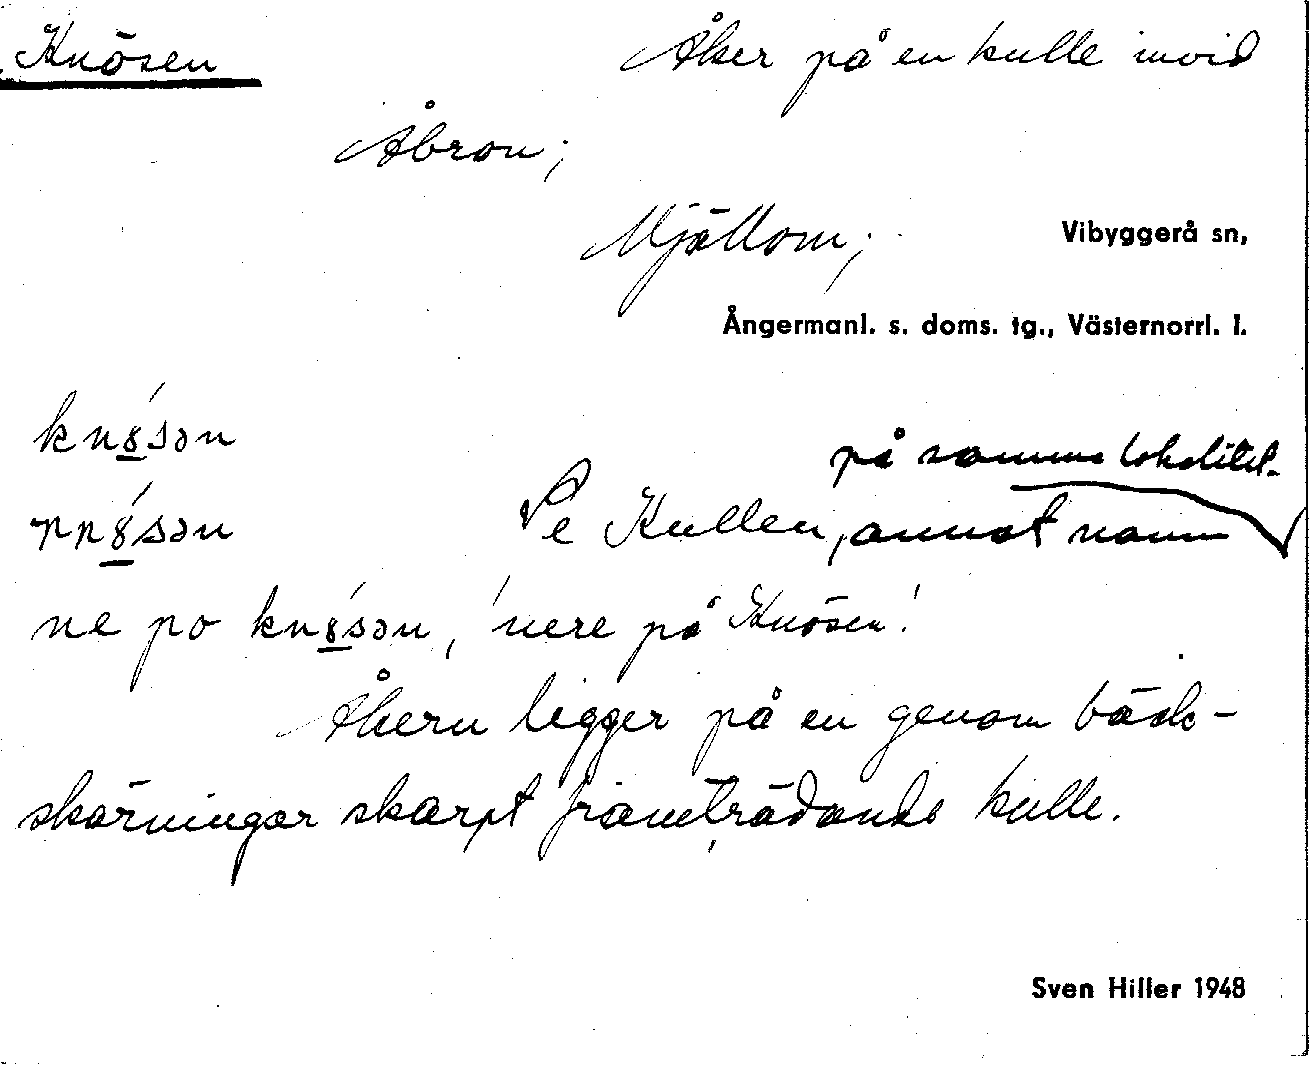 Knösen
Åker på en kulle invid
Åbron;
Mjällom;
Vibyggerå sn,
Ångermanl. s. doms. tg., Västernorrl. l.
kn8́sən
på samma lokalitet.
Se Kullen, annat namn
ne po kn8́sən, 'nere på Knösen'.
Åkern ligger på en genom bäck-
skärningar skarpt framträdande kulle.
Sven Hiller 1948